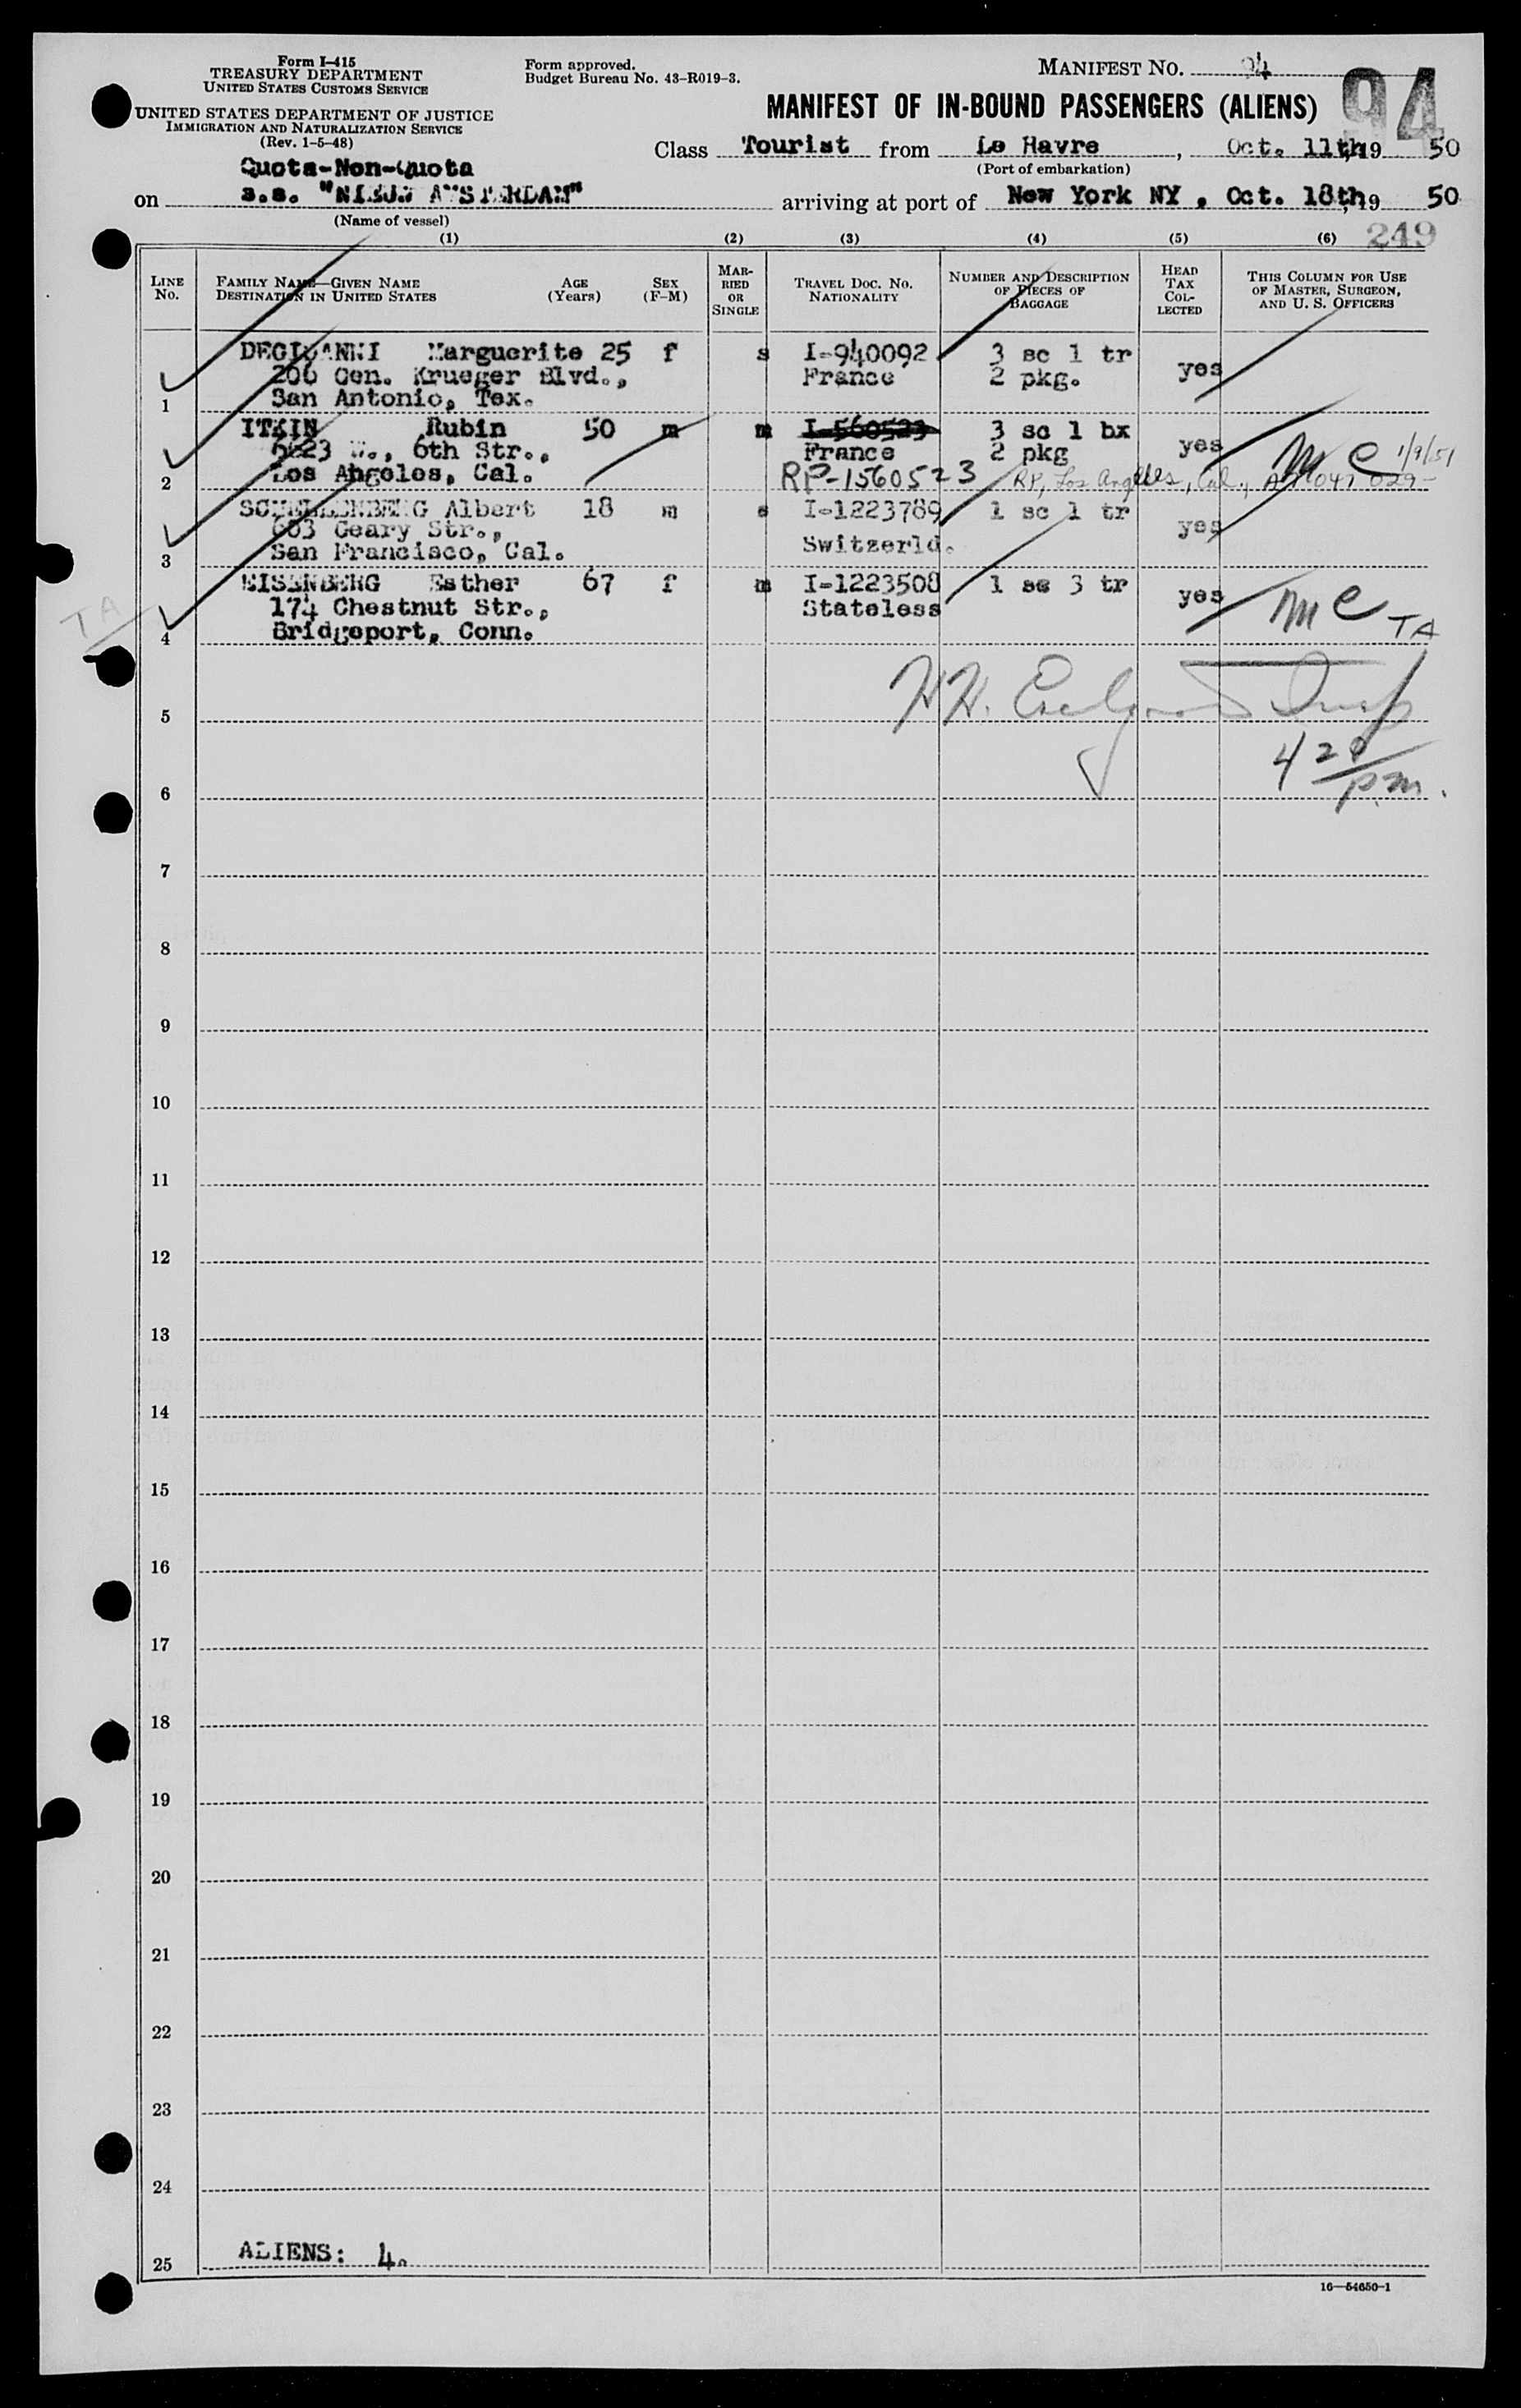 Form I-415
TREASURY DEPARTMENT
UNITED STATES CUSTOMS SERVICE
UNITED STATES DEPARTMENT OF JUSTICE
IMMIGRATION AND NATURALIZATION SERVICE
(Rev. 1-5-48)
Form approved.
Budget Bureau No. 43-R019-3.
MANIFEST NO. 94
94
MANIFEST OF IN-BOUND PASSENGERS (ALIENS)
Class Tourist from Le Havre, Oct. 11th, 19 50
(Port of embarkation)
Quota-Non-Quota
on s.s. "NIEUW AMSTERDAM" arriving at port of New York NY, Oct. 18th, 19 50
(Name of vessel)
(1) (2) (3) (4) (5) (6) 249
LINE No. FAMILY NAME—GIVEN NAME DESTINATION IN UNITED STATES AGE (Years) SEX (F-M) MARRIED OR SINGLE TRAVEL DOC. NO. NATIONALITY NUMBER AND DESCRIPTION OF PIECES OF BAGGAGE HEAD TAX COLLECTED THIS COLUMN FOR USE OF MASTER, SURGEON, AND U. S. OFFICERS
DEGIOANNI Marguerite 25 f s I-940092 3 sc 1 tr
206 Gen. Krueger Blvd., France 2 pkg. yes
1 San Antonio, Tex.
ITKIN Rubin 50 m m I-560523 3 sc 1 bx
6623 W., 6th Str., France 2 pkg yes mc 1/9/51
2 Los Angeles, Cal. RP-1560523 RP, Los Angeles, Cal.,
Albert 18 m s I-1223789 1 sc 1 tr
603 Geary Str., Switzerld. yes
3 San Francisco, Cal.
EISENBERG Esther 67 f m I-1223508 1 sc 3 tr
174 Chestnut Str., Stateless yes mc TA
TA
4 Bridgeport, Conn.
5 H.H. Insp
420 p.m.
6
7
8
9
10
11
12
13
14
15
16
17
18
19
20
21
22
23
24
25 ALIENS: 4.
16—54650-1